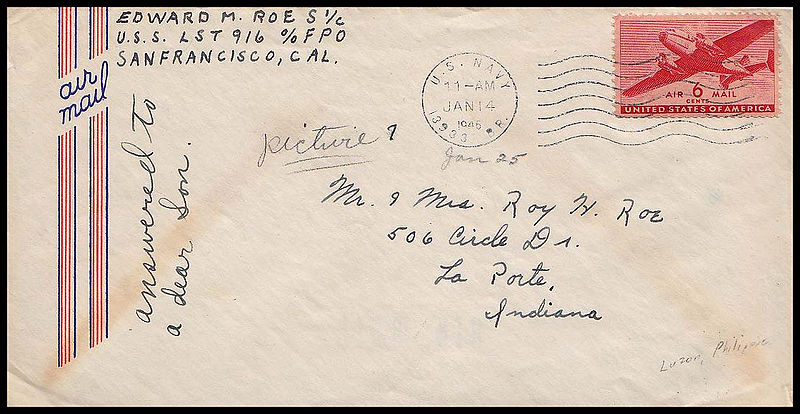 EDWARD M. ROE S 1/c
U.S.S. LST 916 c/o FPO
SANFRANCISCO, CAL.
air
mail
U.S. NAVY
11-AM
JAN 14
1945
13933 BR.
AIR 6 MAIL
CENTS
UNITED STATES OF AMERICA
picture ?
Jan 25
answered to
a dear Son.
Mr. & Mrs. Roy H. Roe
506 Circle Dr.
La Porte,
Indiana
Luzon,